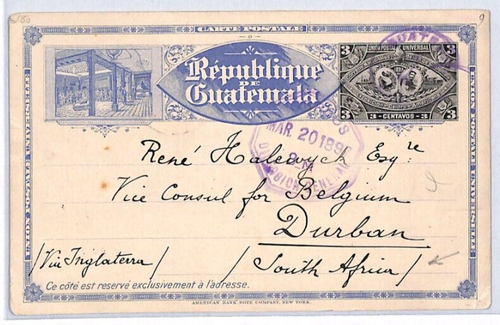 CARTE POSTALE
UNION POSTAL UNIVERSAL
3 3
République
DE
Guatemala
3 CENTAVOS 3
MAR 20 189
René Halewyck Esqre
Vice Consul for Belgium
Durban
/Via Inglaterra/ /South Africa/
Ce côté est reservé exclusivement à l'adresse.
AMERICAN BANK NOTE COMPANY, NEW YORK.